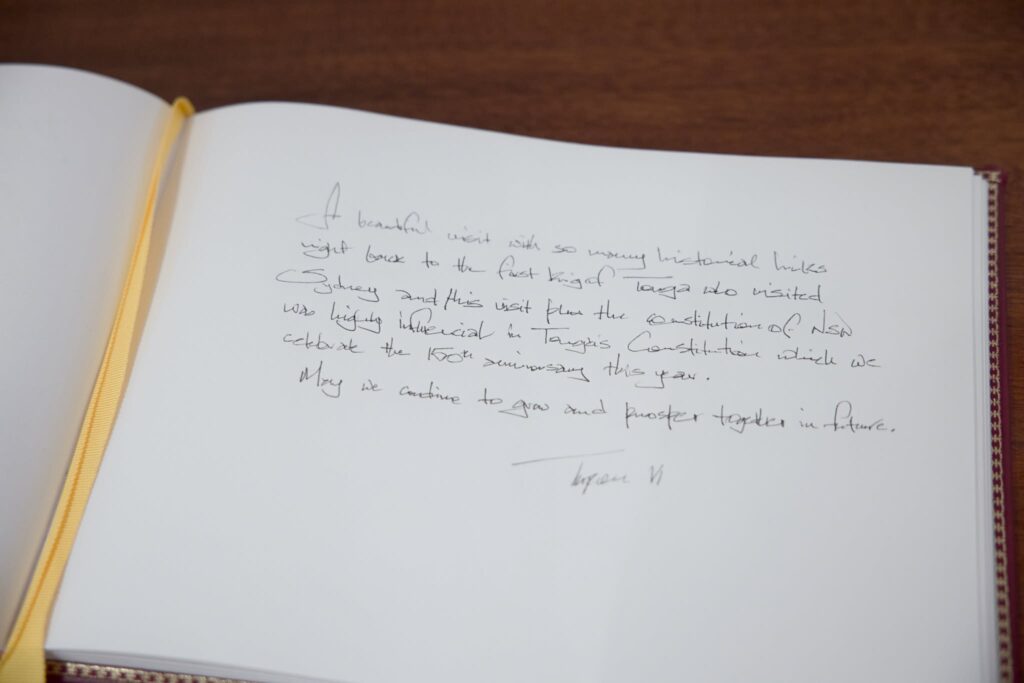 A beautiful visit with so many historical links
right back to the first King of Tonga who visited
Sydney and this visit the constitution of NSW
was highly influencial in Tonga's Constitution which we
celebrate the 150th aniversary this year.
May we continue to grow and prosper together in future.
Tupou VI